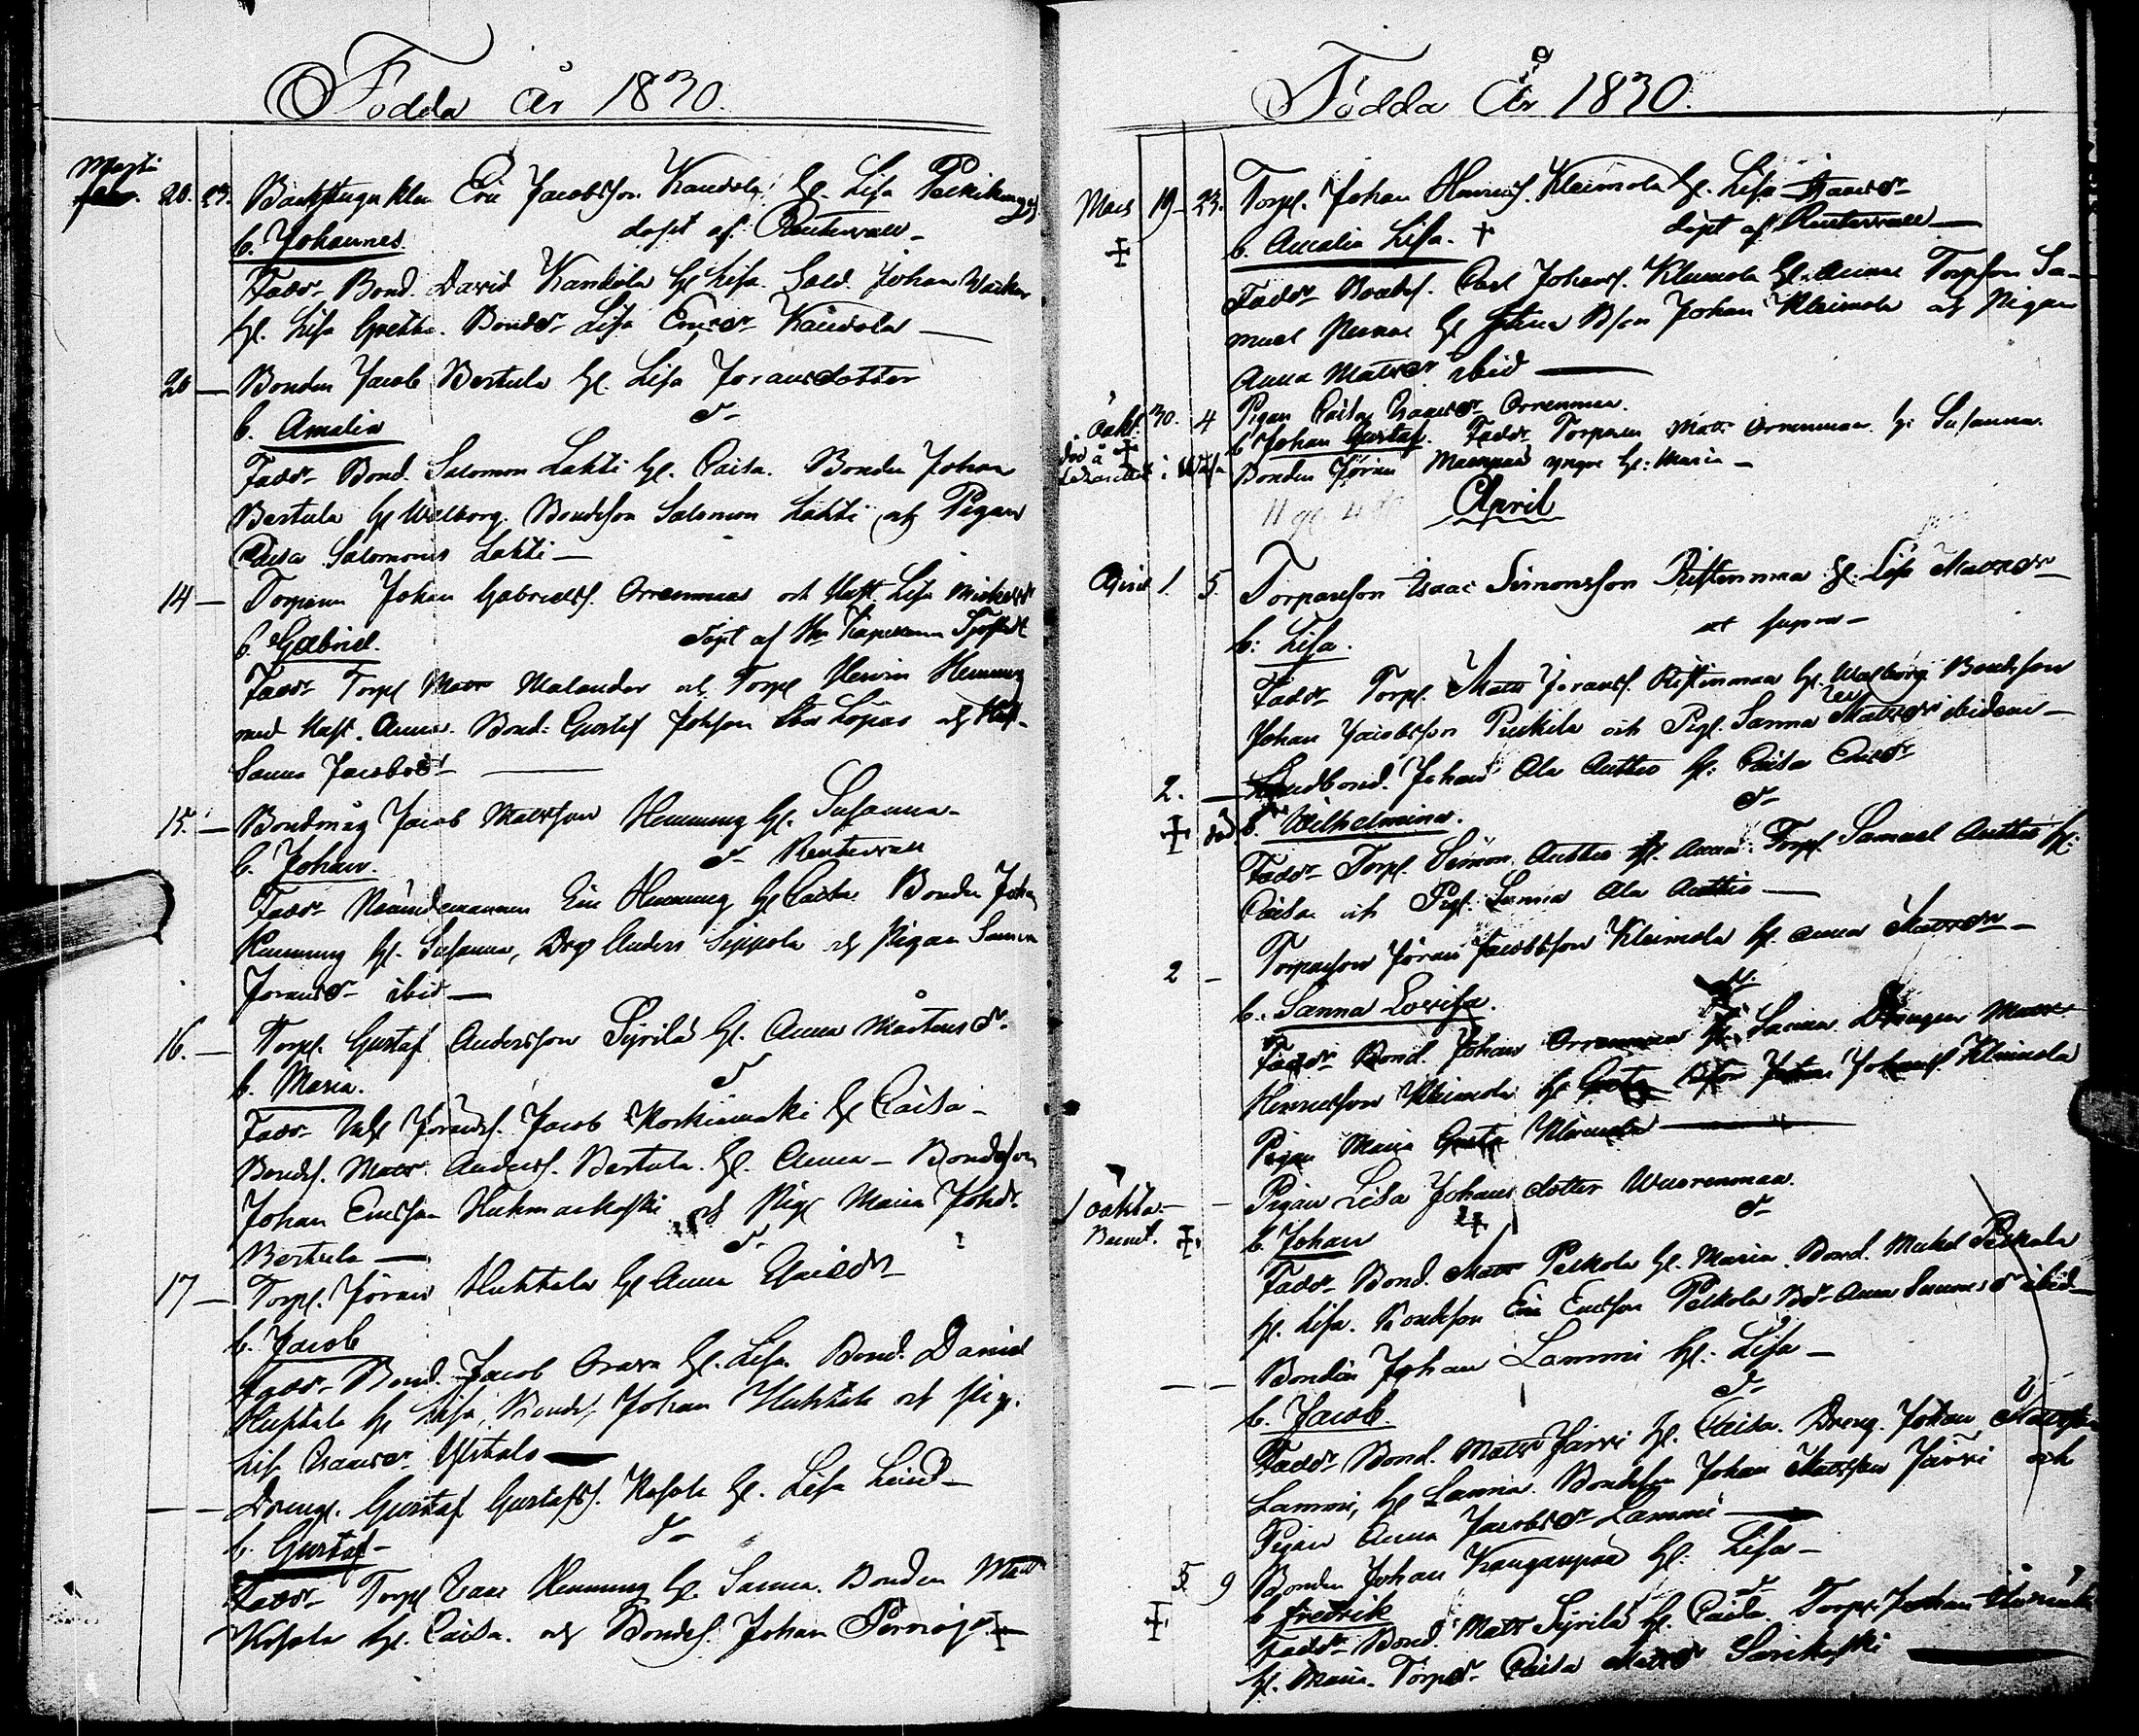 Födda år 1830.
Martii
20. 23. Backstugukarlen Eric Jacobsson Kandola, h. Lisa
b. Johannes. döpt af Reuterwall
Faddr Bond. David Kandola h. Lisa. Sold. Johan Wacker
h. Lisa Greta. Bondedr Lisa Ericsdr Kandola
20 — Bonden Jacob Bertula h. Lisa Joransdotter
b. Amalia dr
Faddr Bond. Salomon Lahti h. Caisa. Bonden Johan
Bertula h. Walborg. Bondeson Salomon Lahti och Pigan
Caisa Salomonsd Lahti —
14 — Torparen Johan Gabrielss. Orrenmaa och Hust. Lisa
b. Gabriel. döpt af Hr Kapellanen
Faddr Torp. Matts Malander och Torp. Henric Hemming
med Hust. Anna. Bond: Gustaf Johsson Stor Lopas och
Sanna Jacobsdr —
15. — Bondmåg Jacob Mattsson Hemming h. Susanna
b. Johan. dr Reuterwall
Faddr Nämndemannen Eric Hemming h. Caisa. Bonden Johan
Hemming h. Susanna, Drg Anders Sippola och Pigan Sanna
Joransdr ibid —
16. — Torp. Gustaf Andersson Syrilä h. Anna Mårtensdr
b. Maria. dr
Faddr Jacob Koskimäki h. Caisa
Bondes. Matts Anderss. Bertula h. Anna — Bondeson
Johan Ericsson Huhmarkoski och Pig. Maria Johsdr
Bertula — dr
17 — Torp. Jöran Huhtala h. Anna
b. Jacob
Faddr Bond. Jacob Orava h. Lisa. Bond. Daniel
Huhtala h. Lisa, Bondes. Johan Huhtala och Pig.
Lisa Isaacsdr —
— — Drengen Gustaf Gustafss. Kosola h. Lisa
b. Gustaf dr
Faddr Torp. Isaac Hemming h. Sanna. Bonden Matts
Kosola h. Caisa. och Bondes. Johan
Födda År 1830.
Mars 19 23. Torp. Johan Henrics. Kleimola h. Lisa Isaacsdr
b. Amalia Lisa. döpt af Reuterwall
Faddr Bondes. Carl Johans. Kleimola h. Anna Torpson Sa-
muel h. Stina Bson Johan Kleimola och Pigan
Anna Mattsdr ibid —
oäkt. 30. 4 Pigan Caisa Isaacsdr Orrenmaa.
b Johan Gustaf. Faddr Torparen Matts Orrenmaa h. Susanna.
död å Lazarettet i Wasa Bonden Jöran Maenpää yngre h: Maria —
April
April 1. 5. Torpareson Isaac Simonsson Ristinmaa h. Lisa Mattsdr
b: Lisa. ut supra —
Faddr Torp. Matts Jorans. Ristinmaa h. Walborg Bondsson
Johan Jacobsson Puskila och Pig. Sanna Mattsdr ibidem —
2. — Landbond. Johan Ala Auttio h. Caisa Ericsdr
död b. Wilhelmina. dr
Faddr Torp. Simon Auttio h. Anna. Torp. Samuel Auttio h.
Caisa och Pig. Sanna Ala Auttio —
2 — Torpareson Jöran Jacobsson Kleimola h. Anna Mattsdr —
b. Sanna Lovisa. dr
Faddr Bond. Johan Orrenmaa h. Sanna. Drengen Matts
Henricsson Kleimola h. Greta Johans. Kleimola
Pigan Maria Greta Kleimola —
oäkta — Pigan Lisa Johansdotter Wuorenmaa.
b. Johan dr
Faddr Bond. Matts Peskola h. Maria. Bond. Mickel Peskala
h. Lisa. Bondeson Eric Ericsson Peskola Bdr Anna ibid —
— — Bonden Johan Lammi h. Lisa —
b. Jacob. dr
Faddr Bond. Matts Järvi h. Caisa. Dreng. Johan Mattsson
Lammi, h. Sanna. Bondeson Johan Mattsson Järvi och
Pigan Anna Jacobsdr Lammi —
5 9 Bonden Johan Kanganpää h. Lisa —
b Fredrik dr
Faddr Bond. Matts Syrilä h. Caisa. Torp. Johan
h. Maria. Torpdr Caisa Mattsdr Sarikoski —